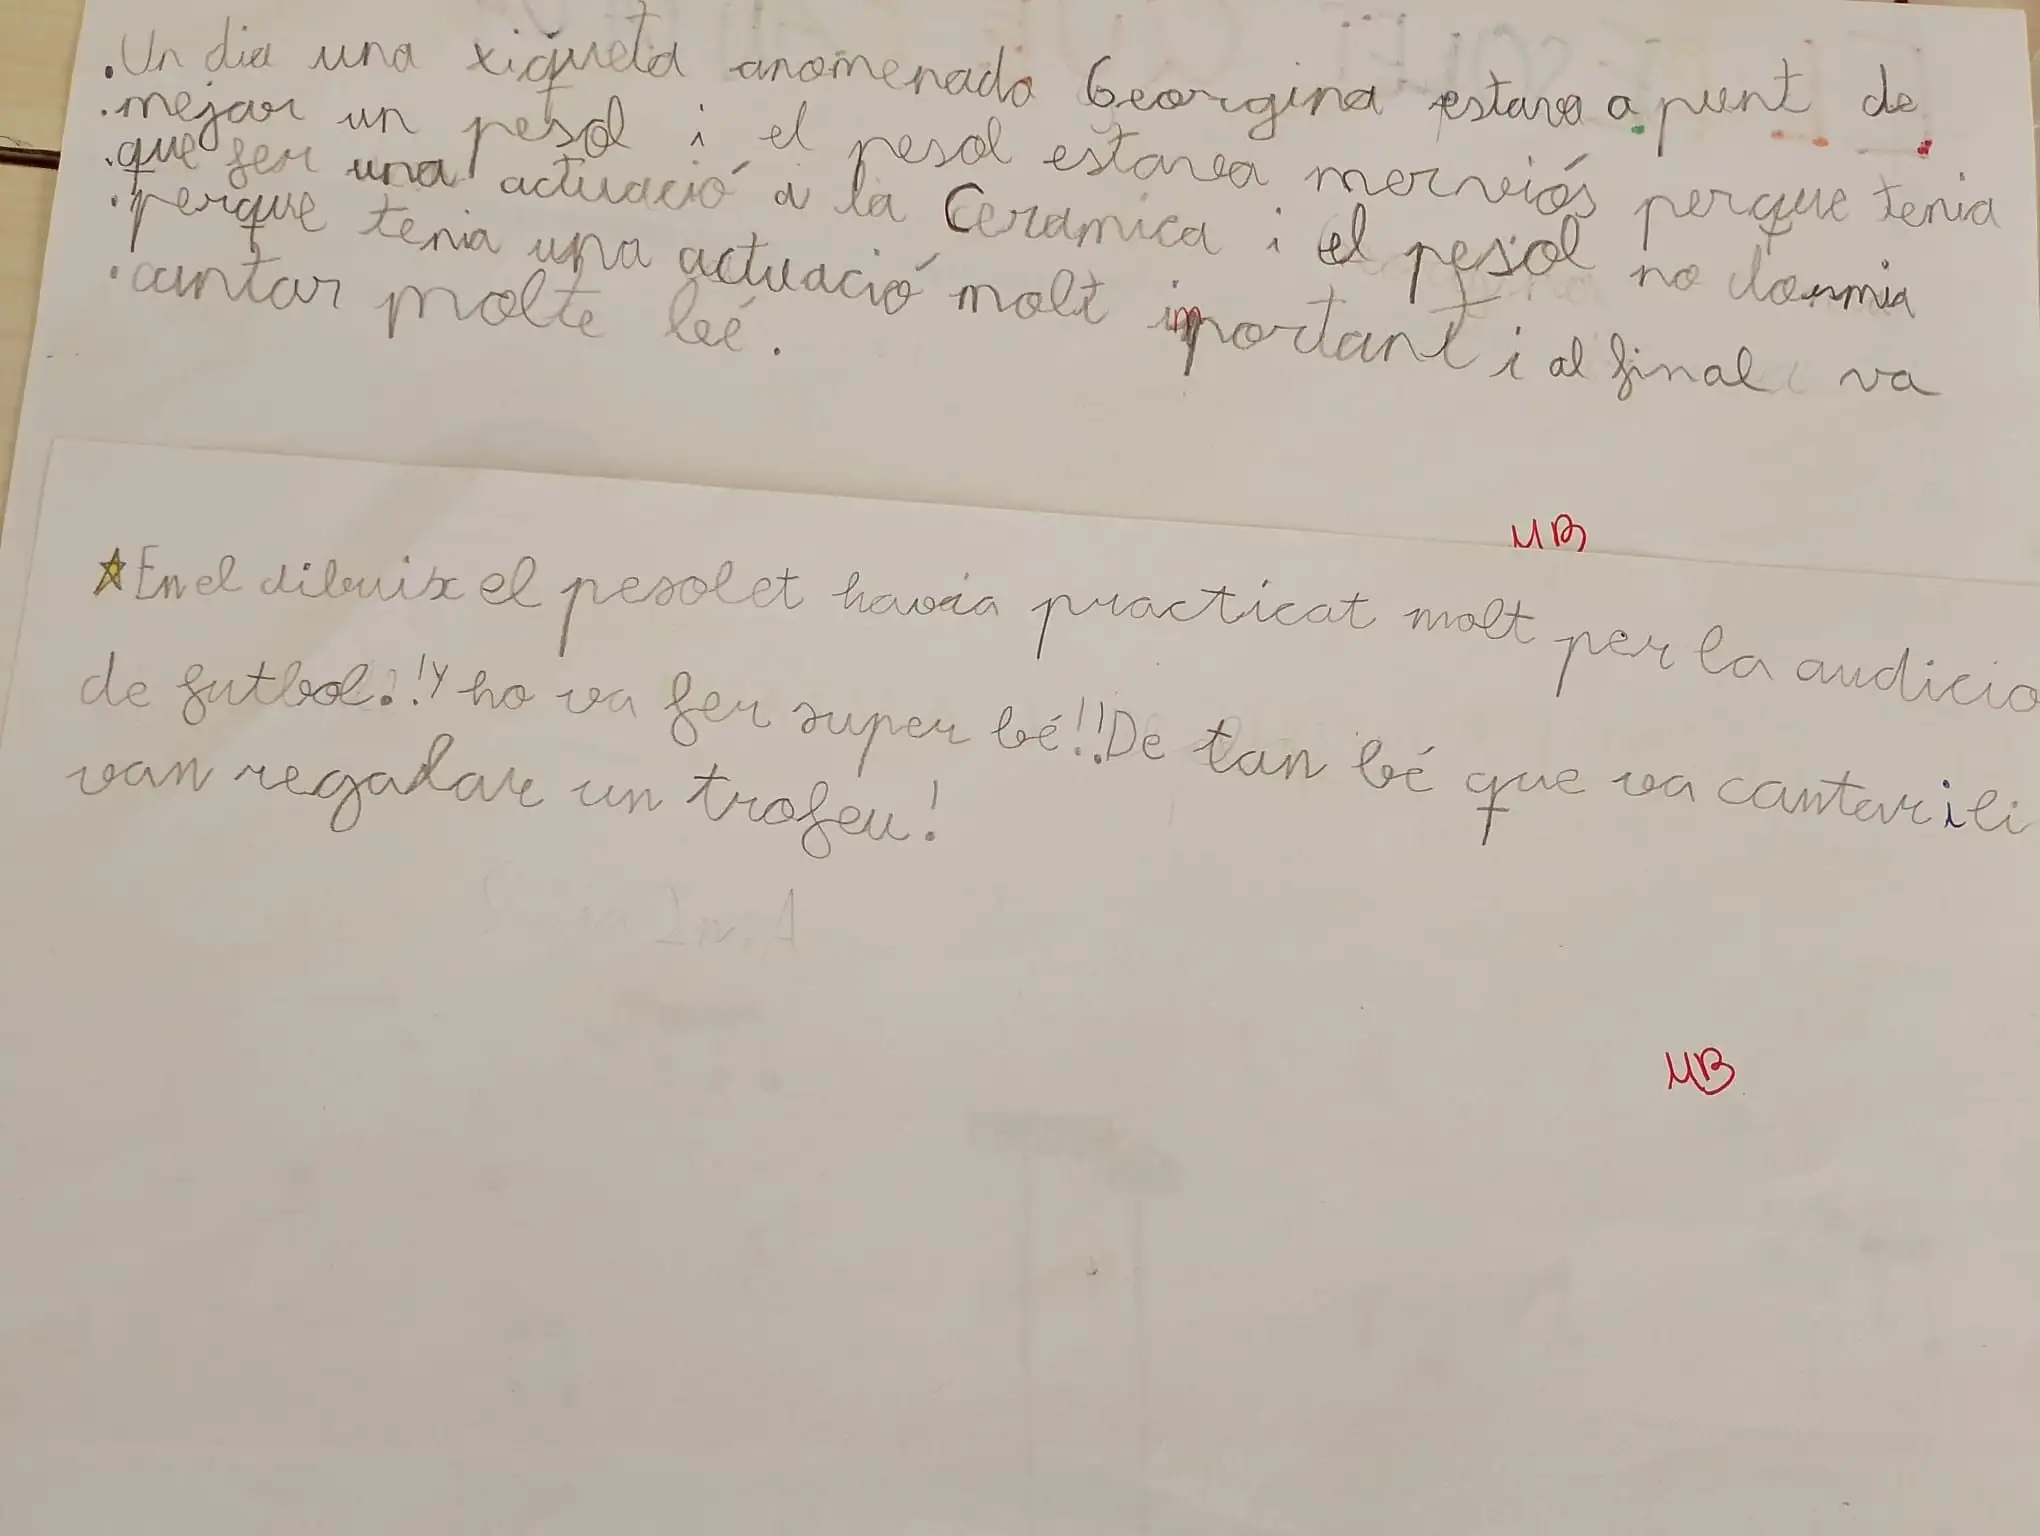 .Un dia una xiqueta anomenada Georgina estava a punt de
.mejar un pesol i el pesol estava merviós perque tenia
.que fer una actuació a la Ceramica i el pesol no dormia
.perque tenia una actuació molt important i al final va
.cantar molte bé.
MB
☆En el dibuix el pesolet havia practicat molt per la audicio
de futbol.!!y ho va fer super bé!!De tan bé que va cantar i li
van regalar un trofeu!
MB